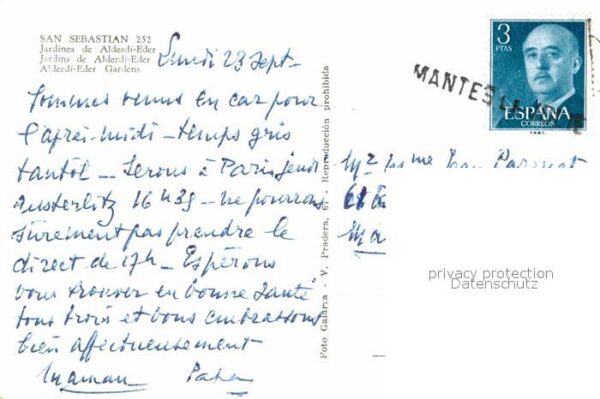 SAN SEBASTIAN 252
Jardines de Alderdi-Eder
Jardins de Alderdi-Eder
Alderdi-Eder Gardens
Lundi 28 Sept-
Sommes venus en car pour
l'après-midi - temps gris
tantôt - Serons à Paris jeudi
Austerlitz 16 H 35 - ne pourrons
sûrement pas prendre le
direct de 17h - Espérons
vous trouver en bonne santé
tous trois et vous embrassons
bien affectueusement
Maman Papa
Foto Galarza - V. Pradera, 67 - Reproducción prohibida
3
PTAS
ESPAÑA
CORREOS
MANTES LA
privacy protection
Datenschutz